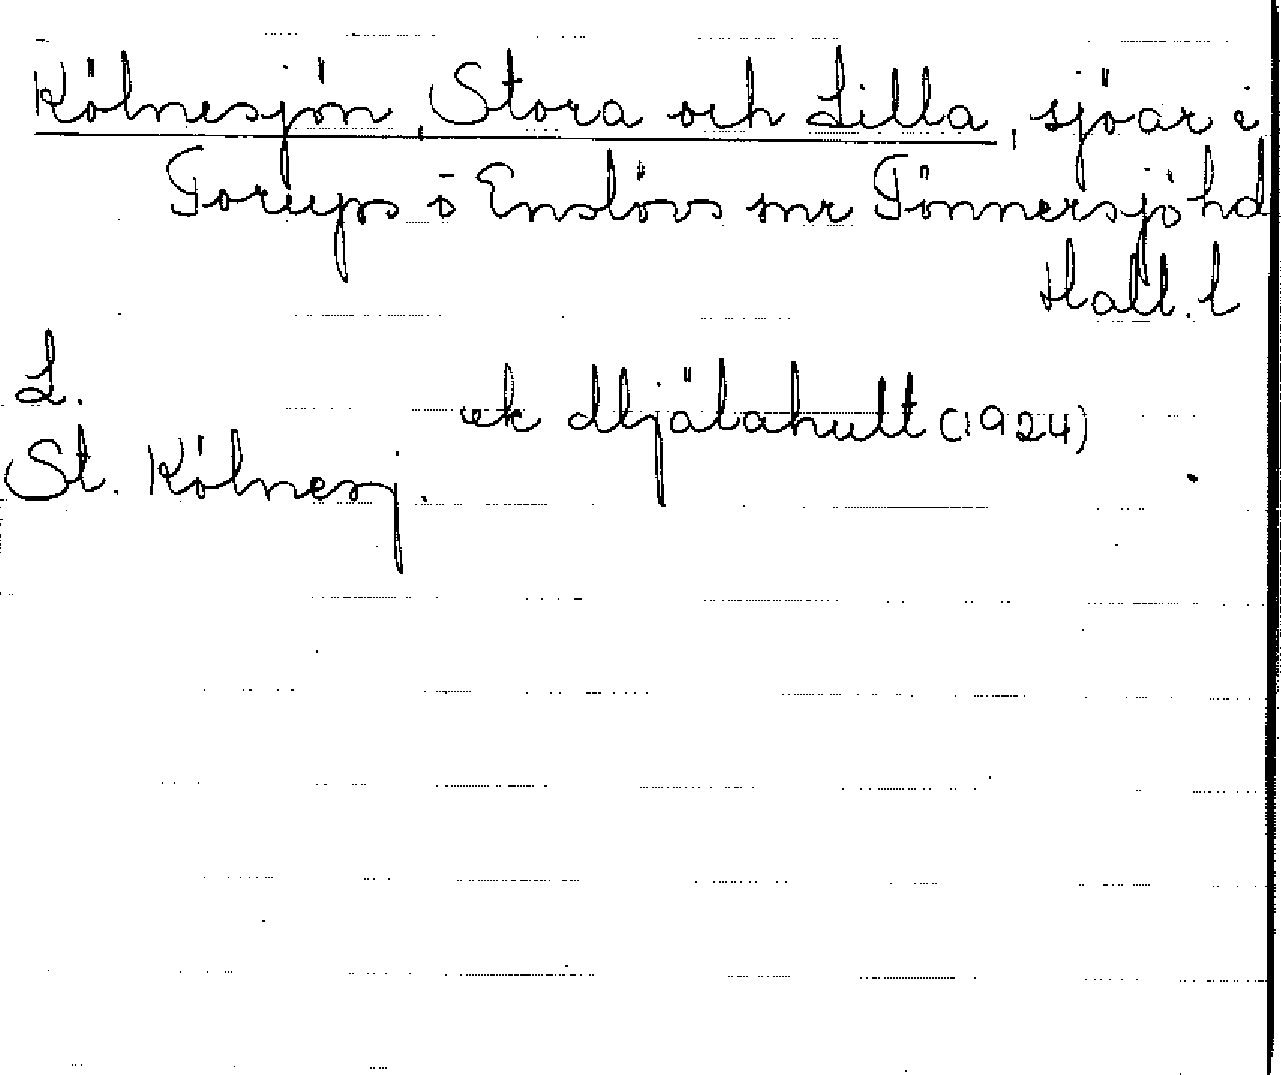 Kölnesjön, Stora och Lilla, sjöar i
Torups o Enslövs snr Tönnersjö hd
Hall. l
L.
ek Mjälahult (1924)
St. Kölnesj.